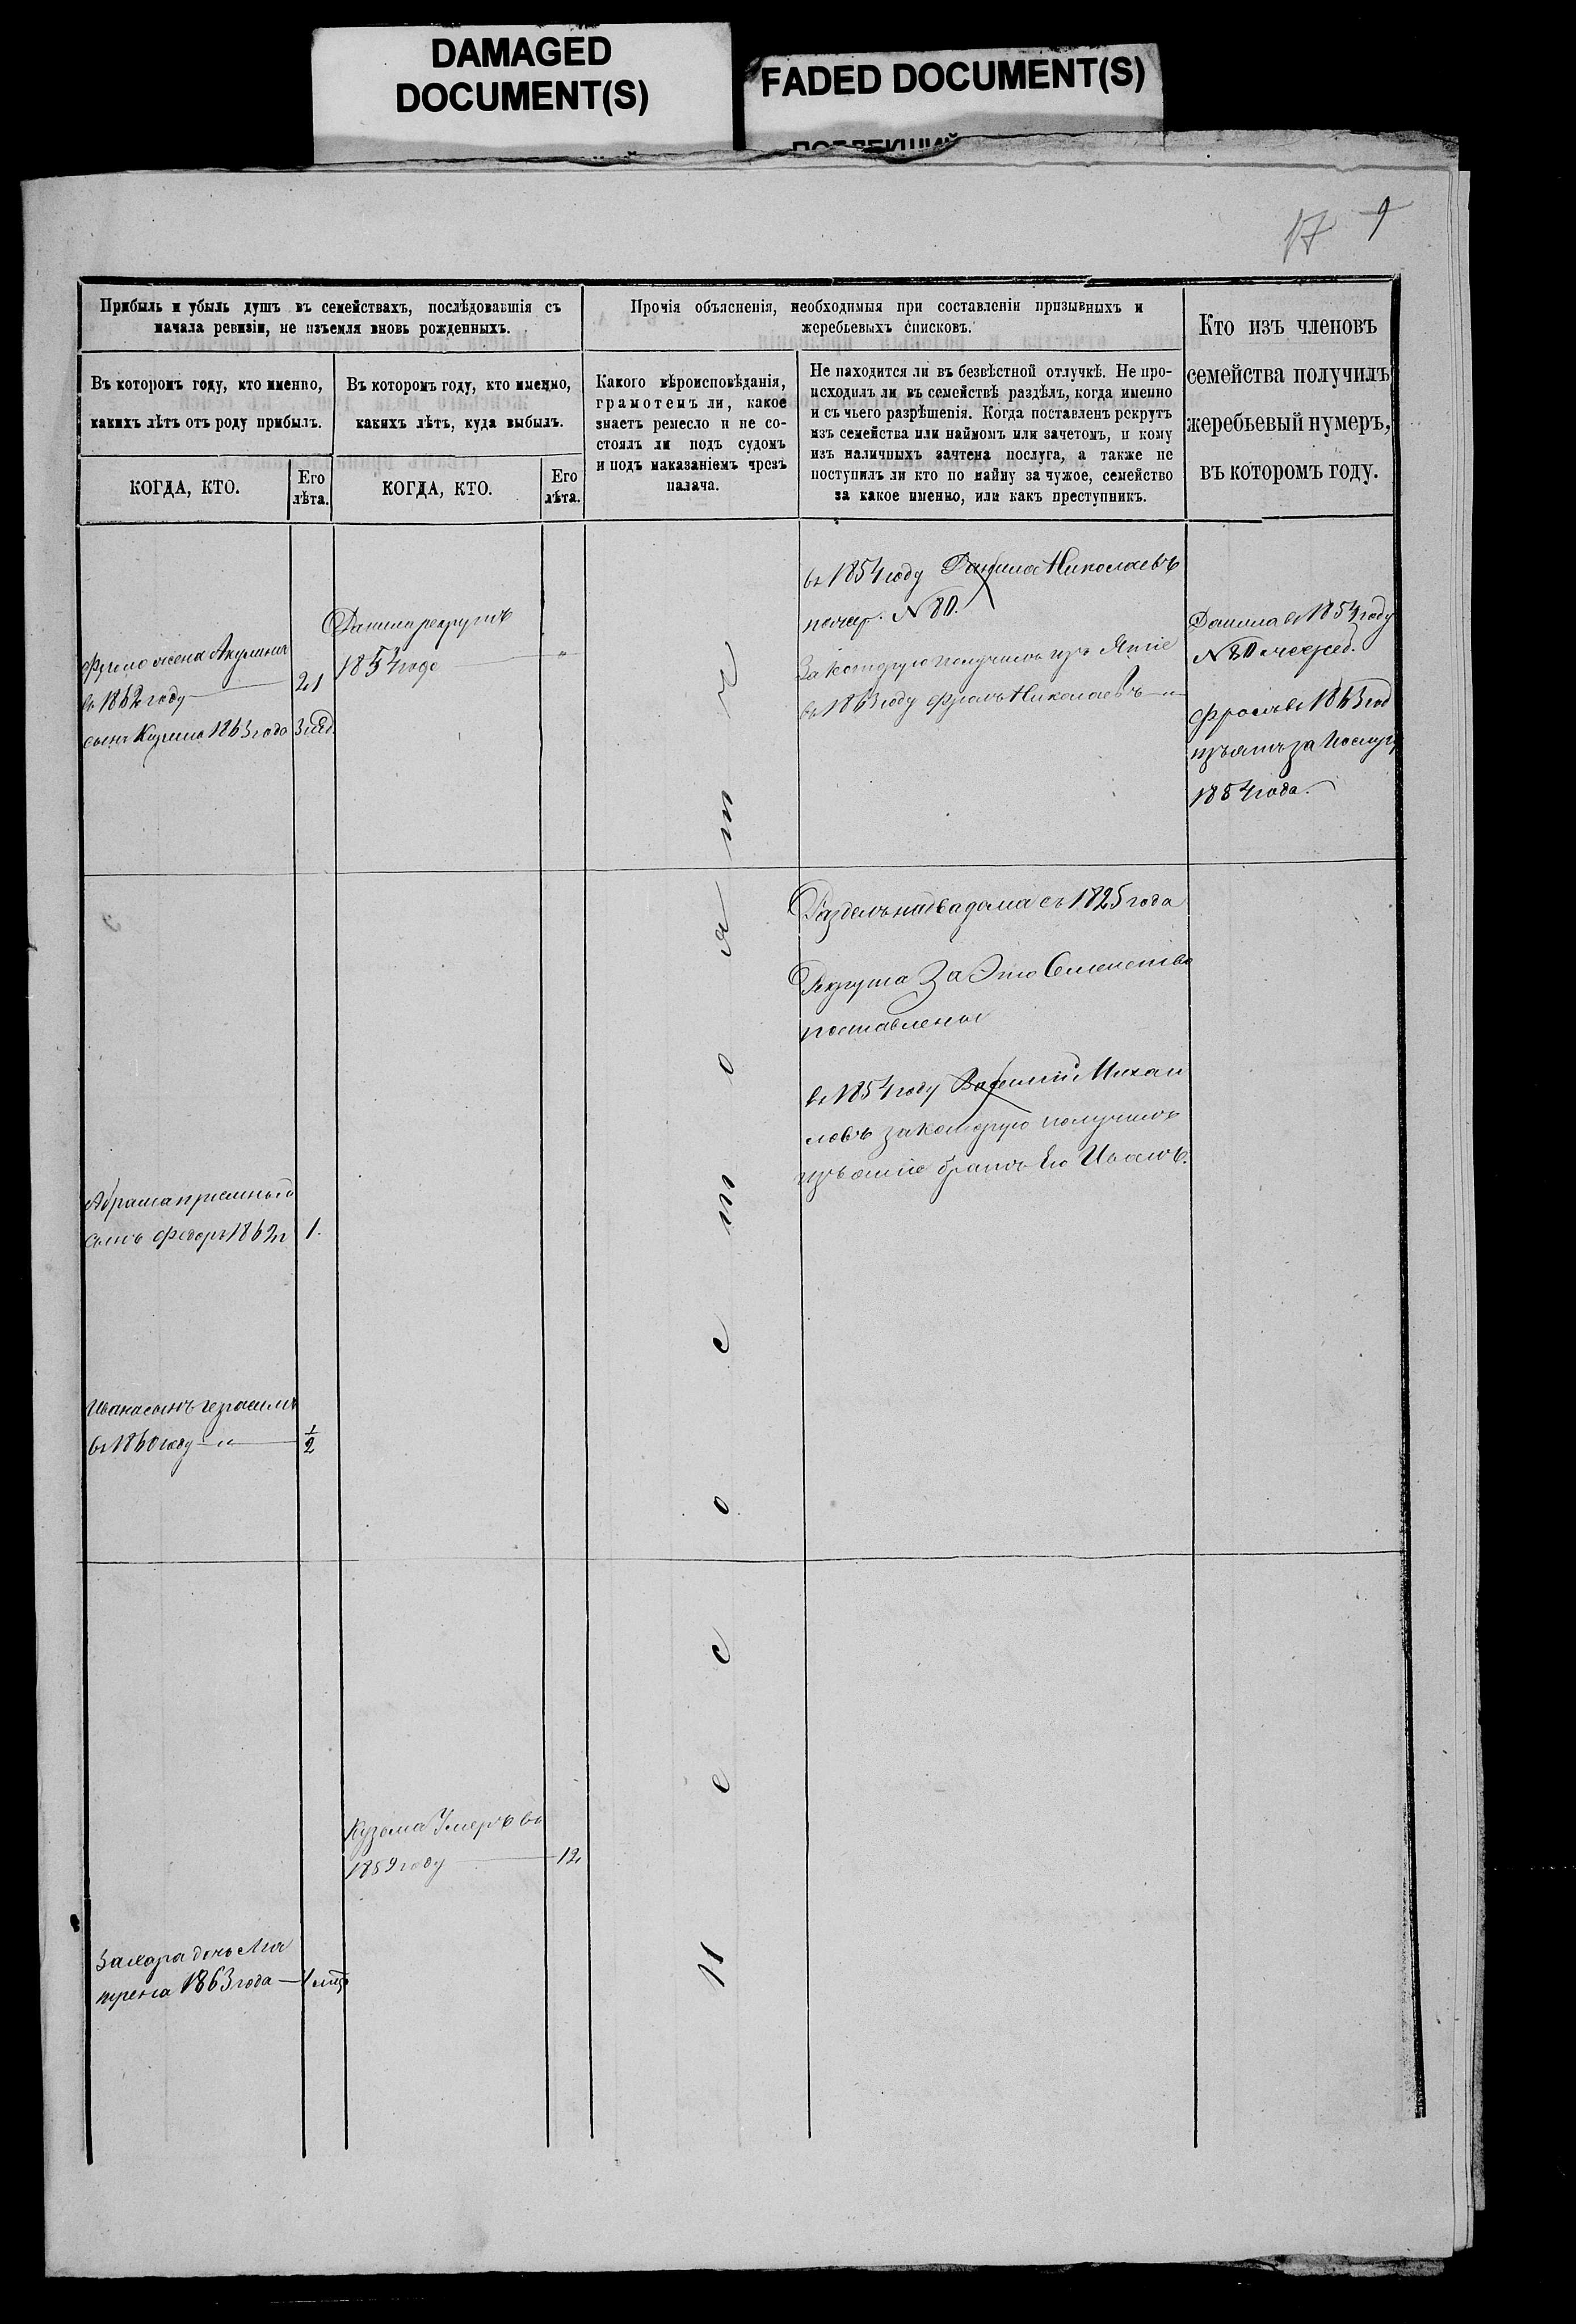 DAMAGED
DOCUMENT(S)
FADED DOCUMENT(S)
17 9
Прибыль и убыль душъ въ семействахъ, послѣдовавшія съ
начала ревизіи, не изъемля вновь рожденныхъ.
Въ которомъ году, кто именно,
какихъ лѣтъ отъ роду прибылъ.
КОГДА, КТО.
Его
лѣта.
Въ которомъ году, кто именно,
какихъ лѣтъ, куда выбылъ.
КОГДА, КТО.
Его
лѣта.
Прочія объясненія, необходимыя при составленіи призывныхъ и
жеребьевыхъ списковъ.
Какого вѣроисповѣданія,
грамотенъ ли, какое
знаетъ ремесло и не со-
стоялъ ли подъ судомъ
и подъ наказаніемъ чрезъ
палача.
Не находится ли въ безвѣстной отлучкѣ. Не про-
исходилъ ли въ семействѣ раздѣлъ, когда именно
и съ чьего разрѣшенія. Когда поставленъ рекрутъ
изъ семейства или наймомъ или зачетомъ, и кому
изъ наличныхъ зачтена послуга, а также не
поступилъ ли кто по найму за чужое, семейство
за какое именно, или какъ преступникъ.
Кто изъ членовъ
семейства получилъ
жеребьевый нумеръ,
въ которомъ году.
жена Акулина
въ 1862 году 21
сынъ Кузьма 1863 года 3 нед.
Данила рекрутъ
1854 годѣ "
въ 1854 году Данила Николаевъ
N 80.
За которую получилъ изъятіе
въ 1863 году Фролъ Николаевъ
Данила въ 1854 году
N 80 очеред.
Фролъ въ 1863 год
изъятъ за послугу
1854 года.
Раздѣлъ на два дома съ 1825 года
Рекрута За Это Семейство
поставлены
въ 1854 году Василий Михаи
ловъ за которую получилъ
изъятіе братъ Его Иванъ.
Абрама приемный
сынъ Федоръ 1862 г 1.
Ивана сынъ Герасимъ
въ 1860 году 1/2
Кузьма Умеръ въ
1859 году 12
Захара дочь Ма
трена 1863 года 1 мѣс